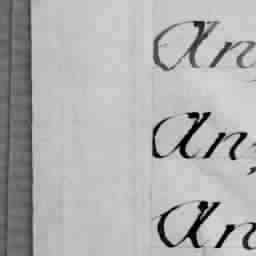 An
An
An